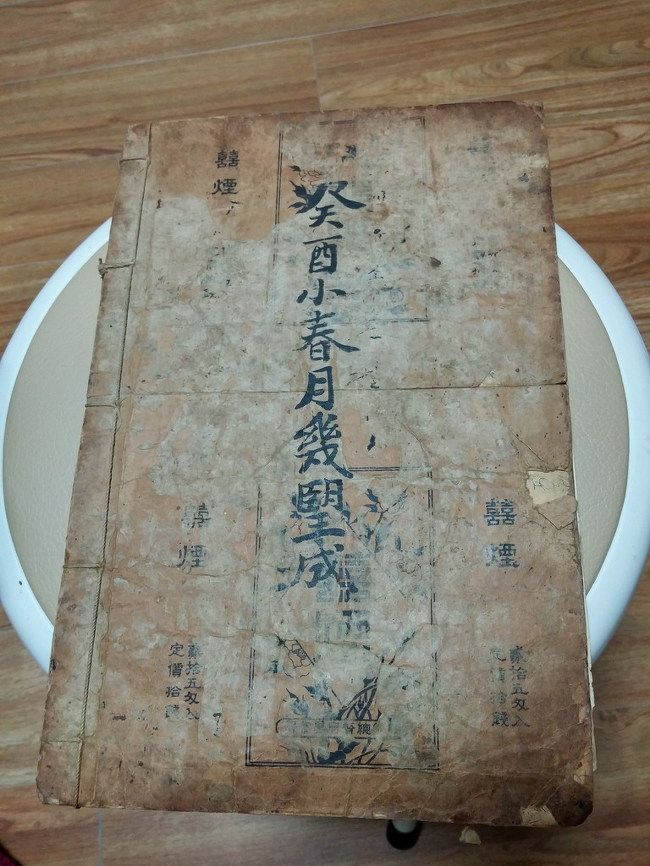 癸酉小春月幾朢成
囍煙
囍煙
囍煙
貳拾五匁入
定價拾錢
貳拾五匁入
定價拾錢